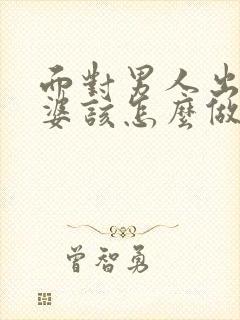 面對男人出
婆該怎麼做
曾智勇